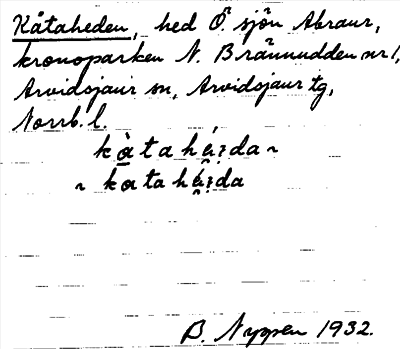 Kåtaheden, hed Ö. sjön Abraur,
kronoparken N. Brännudden nr 1,
Arvidsjaur sn, Arvidsjaur tg,
Norrb. l.
kàtahé̬i̯da ~
~ kata hé̬i̯da
B. Nyppen 1932.